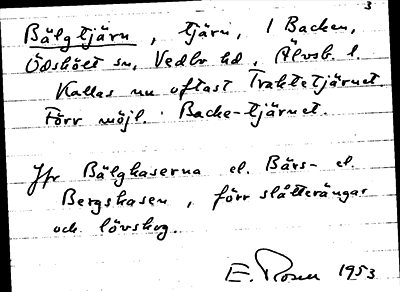 3
Bälgtjärn, tjärn, i Backen,
Ödskölt sn, Vedbo hd, Älvsb. l.
Kallas nu oftast Traktetjärnet.
Förr möjl. Backe-tjärnet.
Jfr Bälgkaserna el. Bärs- el.
Bergskasen, förr slåtterängar
och lövskog.
E. Rosen 1953